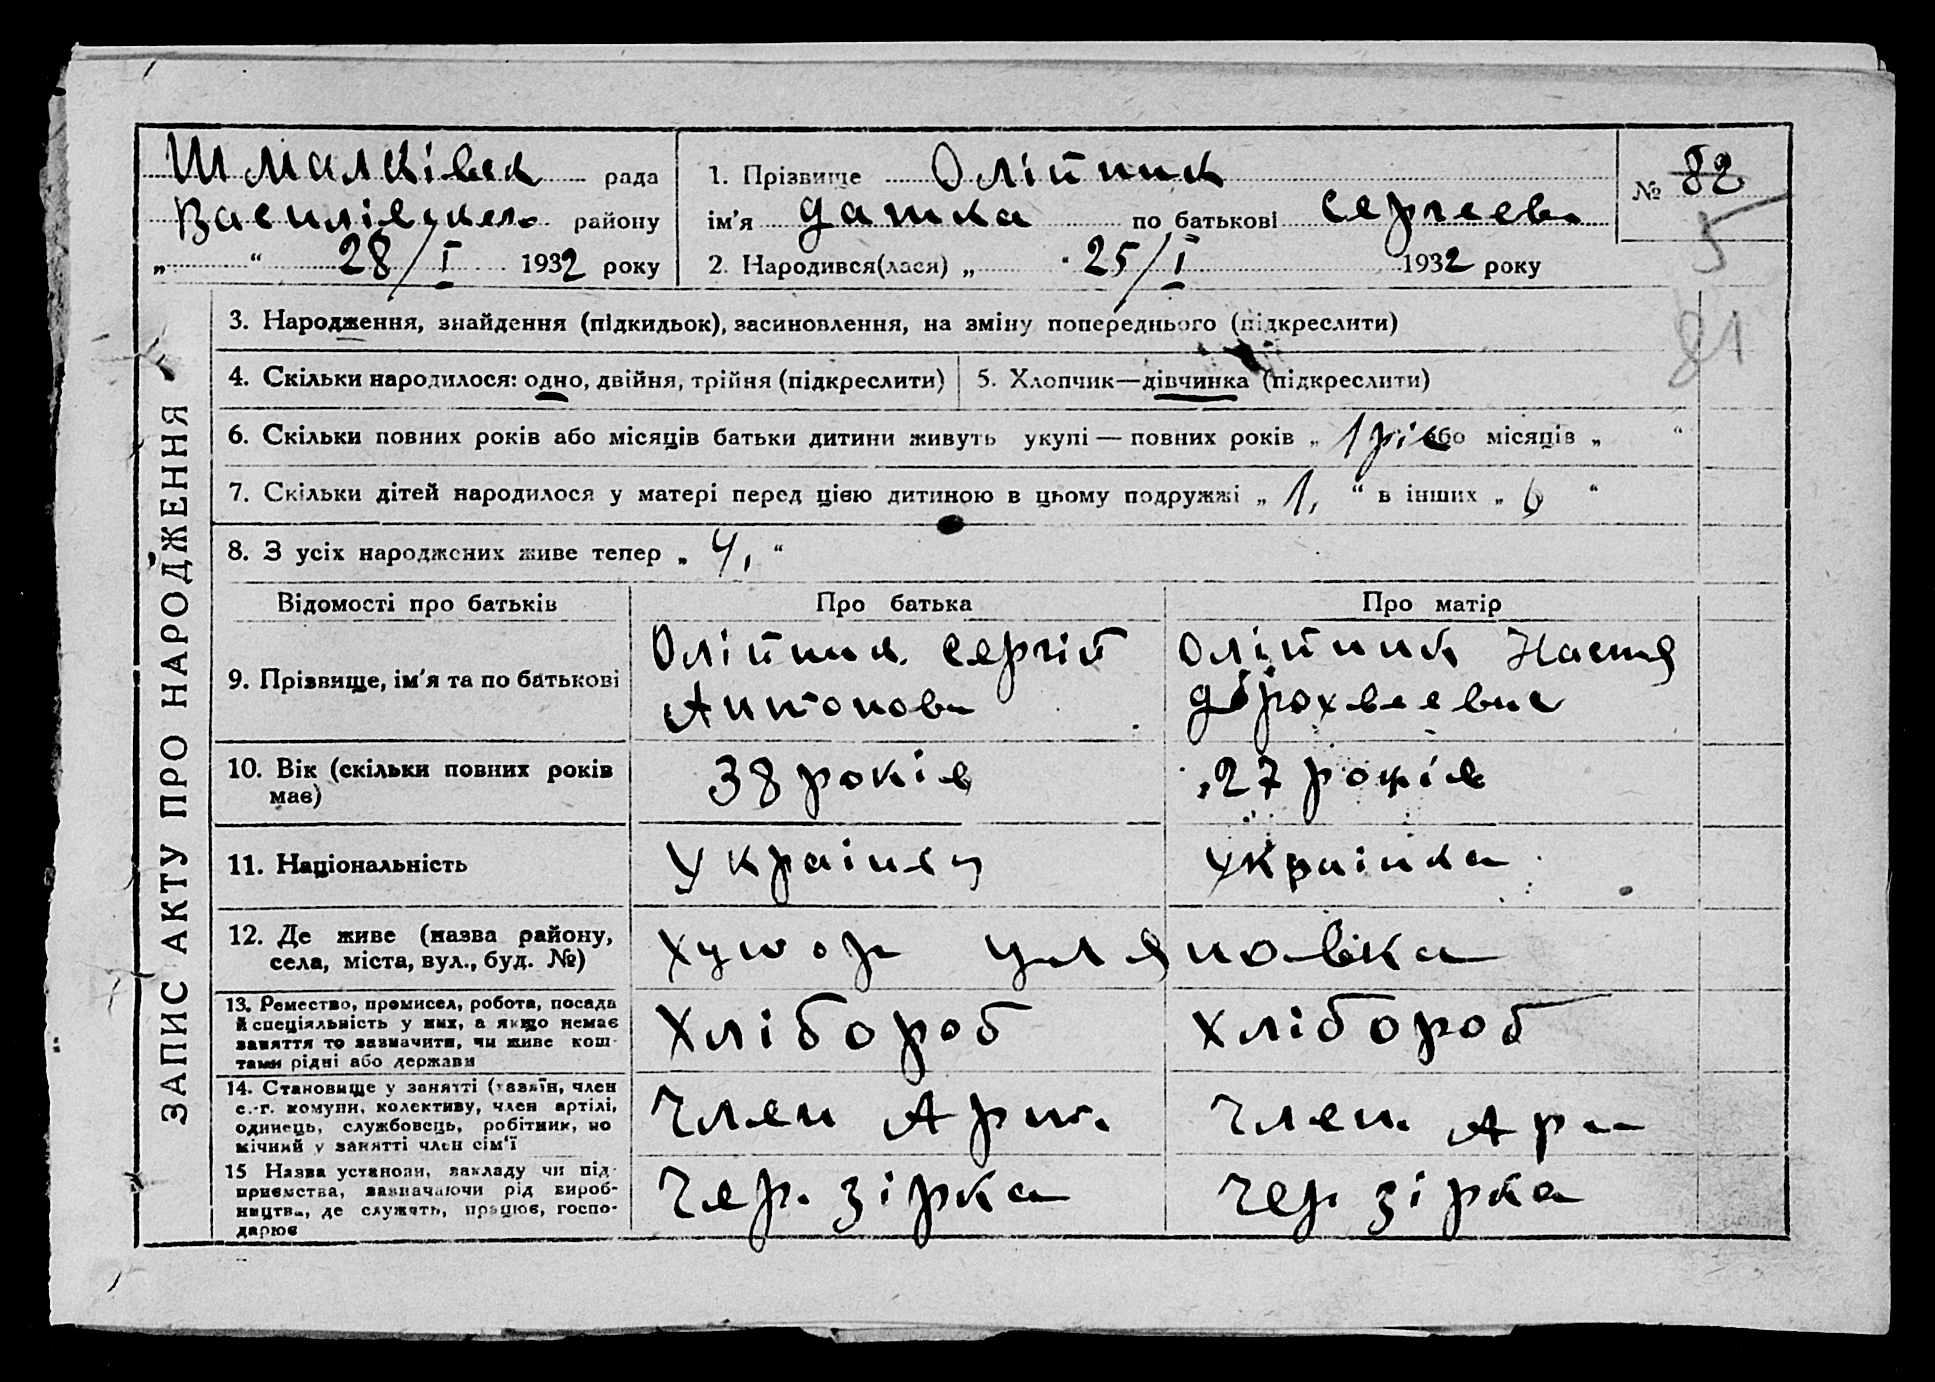 Шмалківск рада
1. Прізвище Олійник
№ 82
району
ім'я Датка по батькові Сергеевн
5
„ “ 28/I 1932 року
2. Народився(лася) „ “ 25/I 1932 року
3. Народження, знайдення (підкидьок), засиновлення, на зміну попереднього (підкреслити)
81
4. Скільки народилося: одно, двійня, трійня (підкреслити)
5. Хлопчик—дівчинка (підкреслити)
6. Скільки повних років або місяців батьки дитини живуть укупі — повних років „ 1 рік або місяців „ “
7. Скільки дітей народилося у матері перед цією дитиною в цьому подружжі „ 1, “ в інших „ 6 “
8. З усіх народжених живе тепер „ 4, “
ЗАПИС АКТУ ПРО НАРОДЖЕННЯ
Відомості про батьків
Про батька
Про матір
9. Прізвище, ім'я та по батькові
Олійник Сергій
Антонов
Олійник Настя
10. Вік (скільки повних років
має)
38 років
27 років
11. Національність
Украінец
Украінка
12. Де живе (назва району,
села, міста, вул., буд. №)
Хутор Уляновка
13. Ремество, промисел, робота, посада
й спеціяльність у них, а якщо немає
заняття то зазначити, чи живе кош-
тами рідні або держави
Хлібороб
Хлібороб
14. Становище у занятті (хазяїн, член
с.-г. комуни, колективу, член артілі,
одинець, службовець, робітник, по
мічний у занятті член сім'ї
Член Арт.
Член Ар
15 Назва установи, закладу чи під-
приємства, зазначаючи рід вироб-
ництва, де служить, працює, госпо-
дарює
Чер. зірка
Чер. зірка